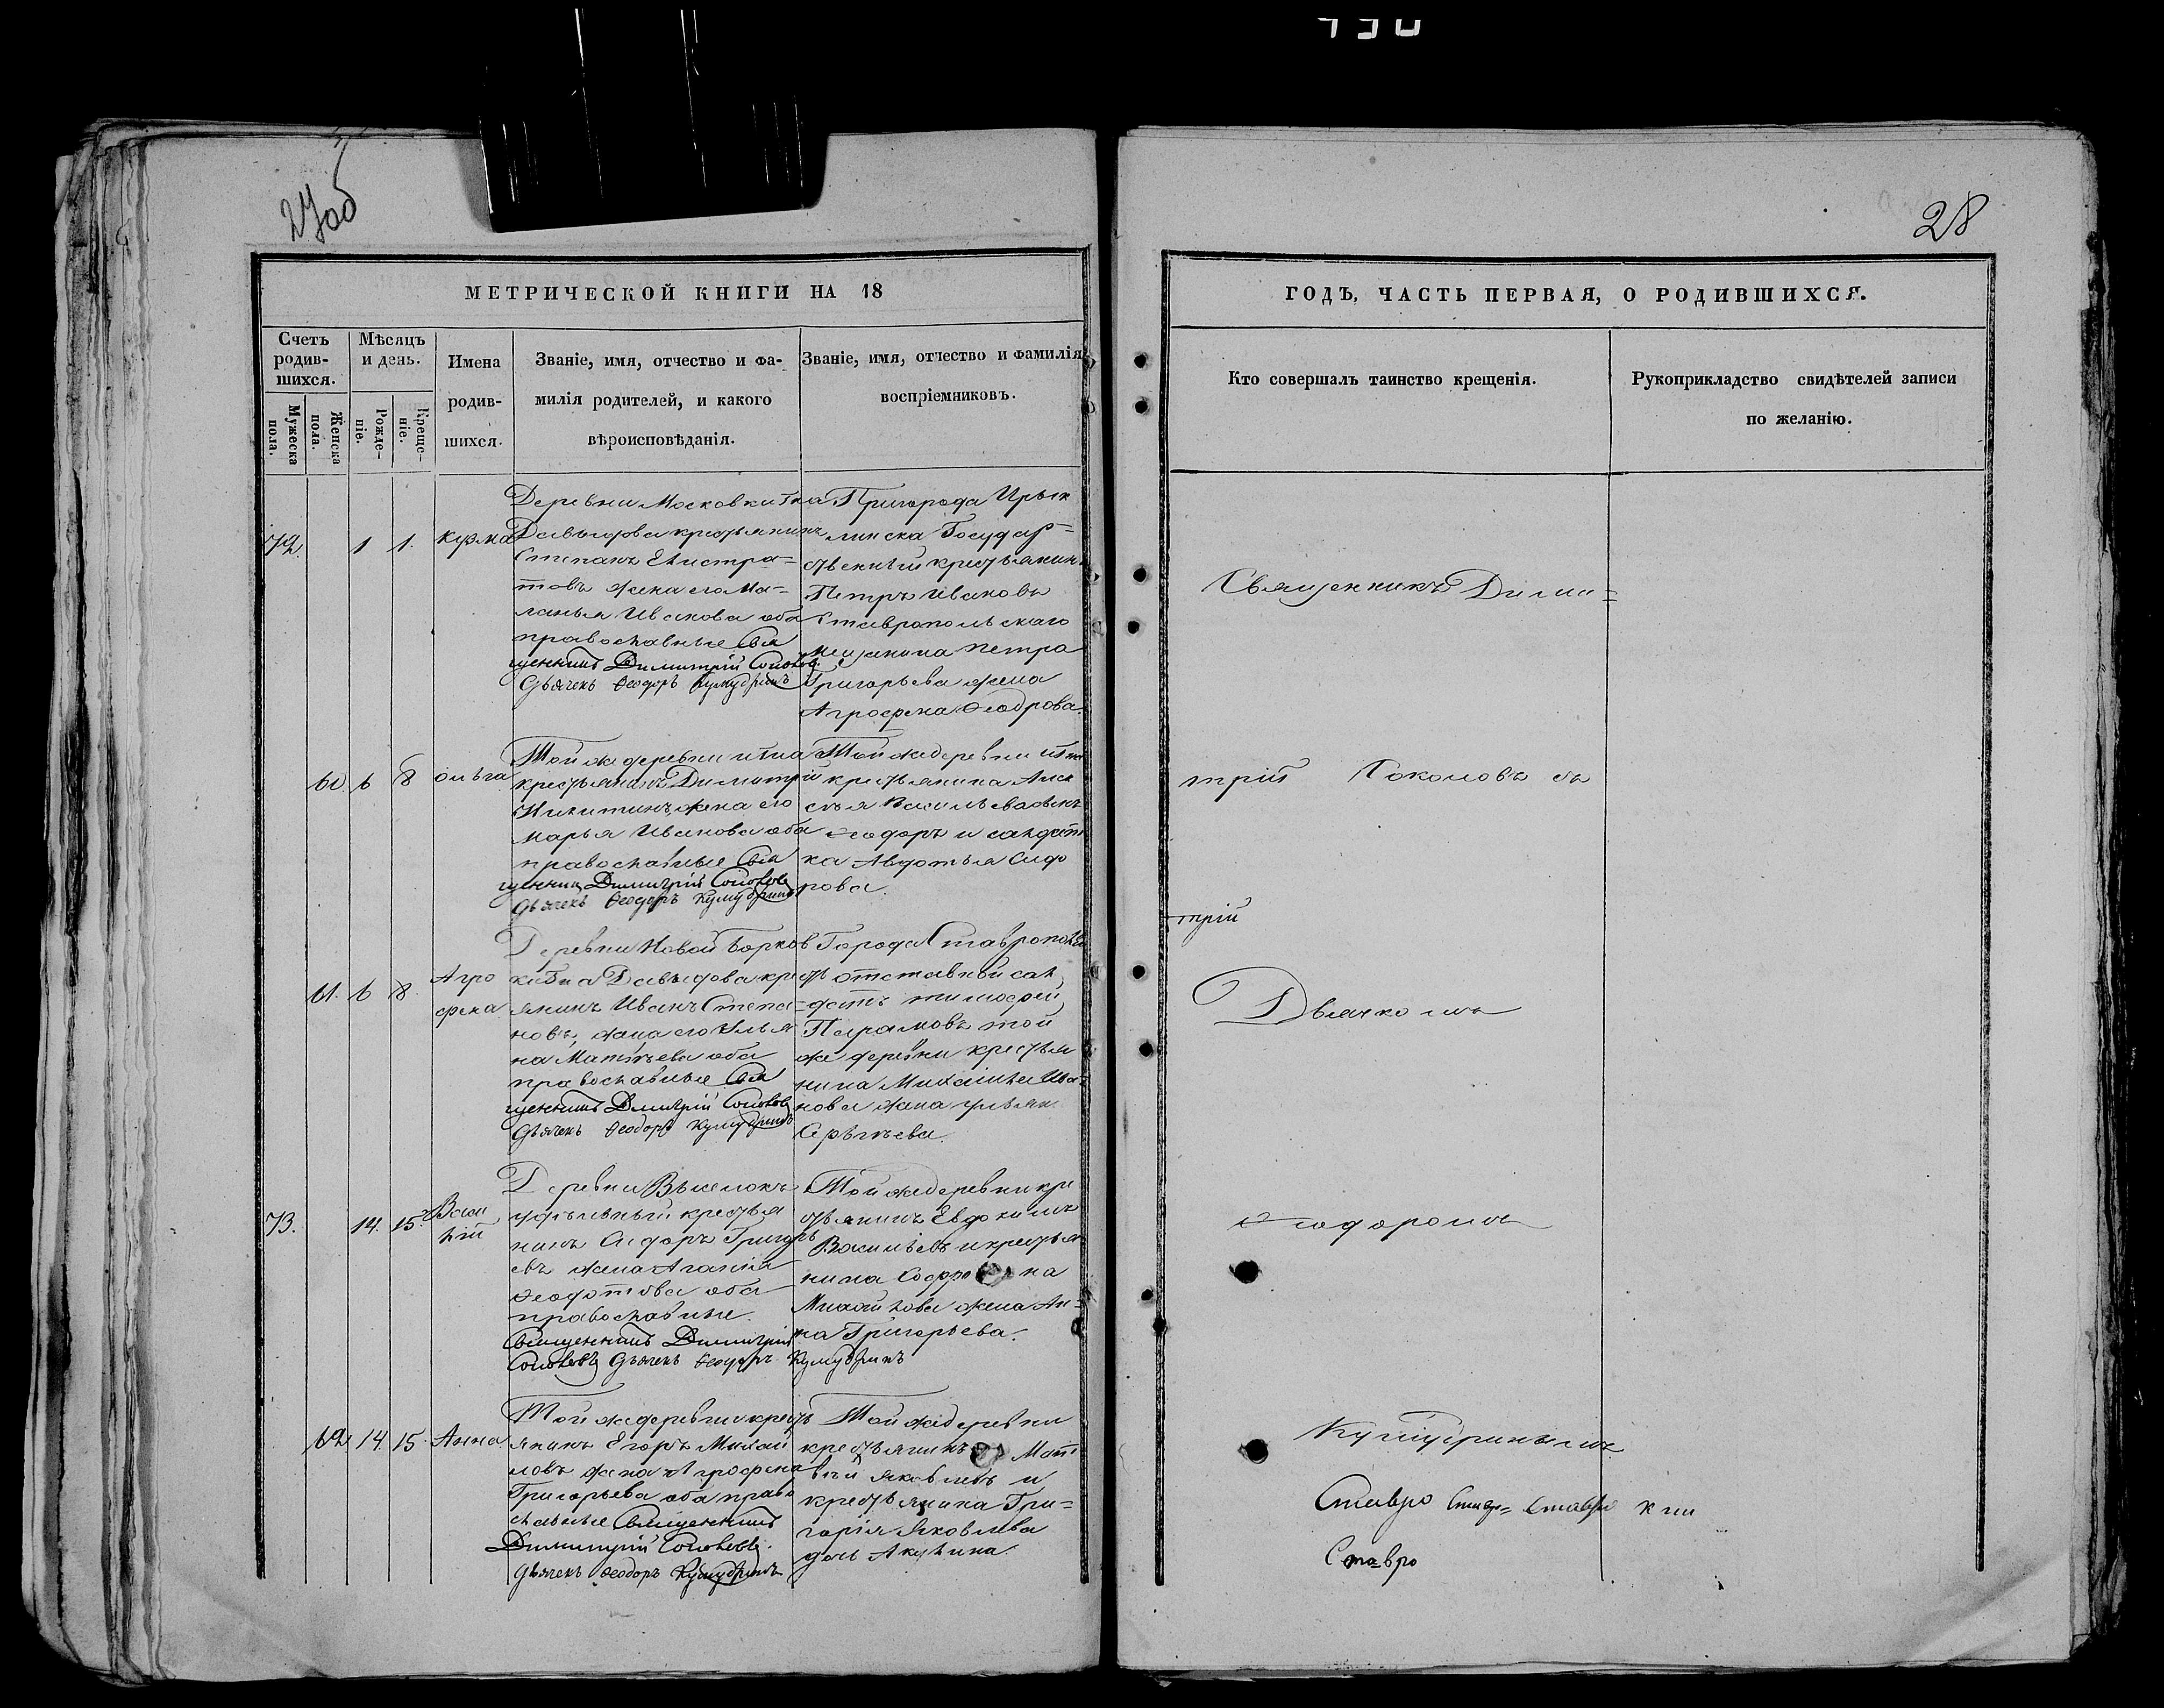 27об
28
МЕТРИЧЕСКОЙ КНИГИ НА 18
ГОДЪ, ЧАСТЬ ПЕРВАЯ, О РОДИВШИХСЯ.
Счетъ родив-шихся.
Мужеска пола.
Женска пола.
Мѣсяцъ и день.
Рожде-ніе.
Креще-ніе.
Имена родив-шихся.
Званіе, имя, отчество и фа-
милія родителей, и какого
вѣроисповѣданія.
Званіе, имя, отчество и фамилія
воспріемниковъ.
Кто совершалъ таинство крещенія.
Рукоприкладство свидѣтелей записи
по желанію.
72.
1
1.
Кузма
Деревни Московки тна
Давыдова крестьянинъ
Степанъ Евистра=
товъ жена его Ма=
ланья Иванова оба
православные Свя
щенникъ Димитрій Соколовъ
Дьячекъ Ѳеодоръ
Пригорода
Государ=
ственный крестьянинъ
Петръ Ивановъ
Ставропольскаго
мещанина Петра
Григорьева жена
Агрофена Ѳеодрова.
60
6
8
Ольга
Той же деревни итна
крестьянинъ Димитрій
Никитинъ, жена его
Марья Иванова оба
православные Свя
щенник Димитрій Соколовъ
Дьячекъ Ѳеодоръ
Той же деревни
крестьянина Алек
сѣя Васильева сынъ
Ѳеодоръ и салдат
ка Авдотья Сидо
рова.
61.
6
8.
Агро
фена
Деревни Новой Борков
ки тна Давыдова крест
янинъ Иванъ Степа=
новъ, жена его Улья
на Матвѣева оба
православные Свя
щенникъ Димитрій Соколовъ
Дьячекъ Ѳеодоръ
Города Ставрополя
отставной сал
датъ Тимофей
той
же деревни крестья
нина Михайла Ива
нова жена
Сергѣева.
73.
14.
15.
Васи
лій
Деревни Выселокъ
удѣльный крестья
нинъ Сидоръ Григорь
евъ жена
Ѳеодотова оба
православные.
Священникъ Димитрій
Соколовъ Дьячекъ Ѳеодоръ
Той же деревни кре
стьянинъ Евдокимъ
Васильевъ и крестья
нина Софро на
Михайлова жена Ан=
на Григорьева.
62
14.
15.
Анна
Той же деревни крест
янинъ Егоръ Михай
ловъ жена Агрофена
Григорьева оба право
славные Священникъ
Димитрій Соколовъ.
Дьячекъ Ѳеодоръ
Той же деревни
крестьянинъ Мат
вѣй Яковлевъ и
крестьянина Гри=
горія Яковлева
дочь Акулина.
Священникъ Дими=
трій Соколовъ съ
трій
Дьячкомъ
Ѳеодоромъ
Ставро Ставро= Ставро
Ставро